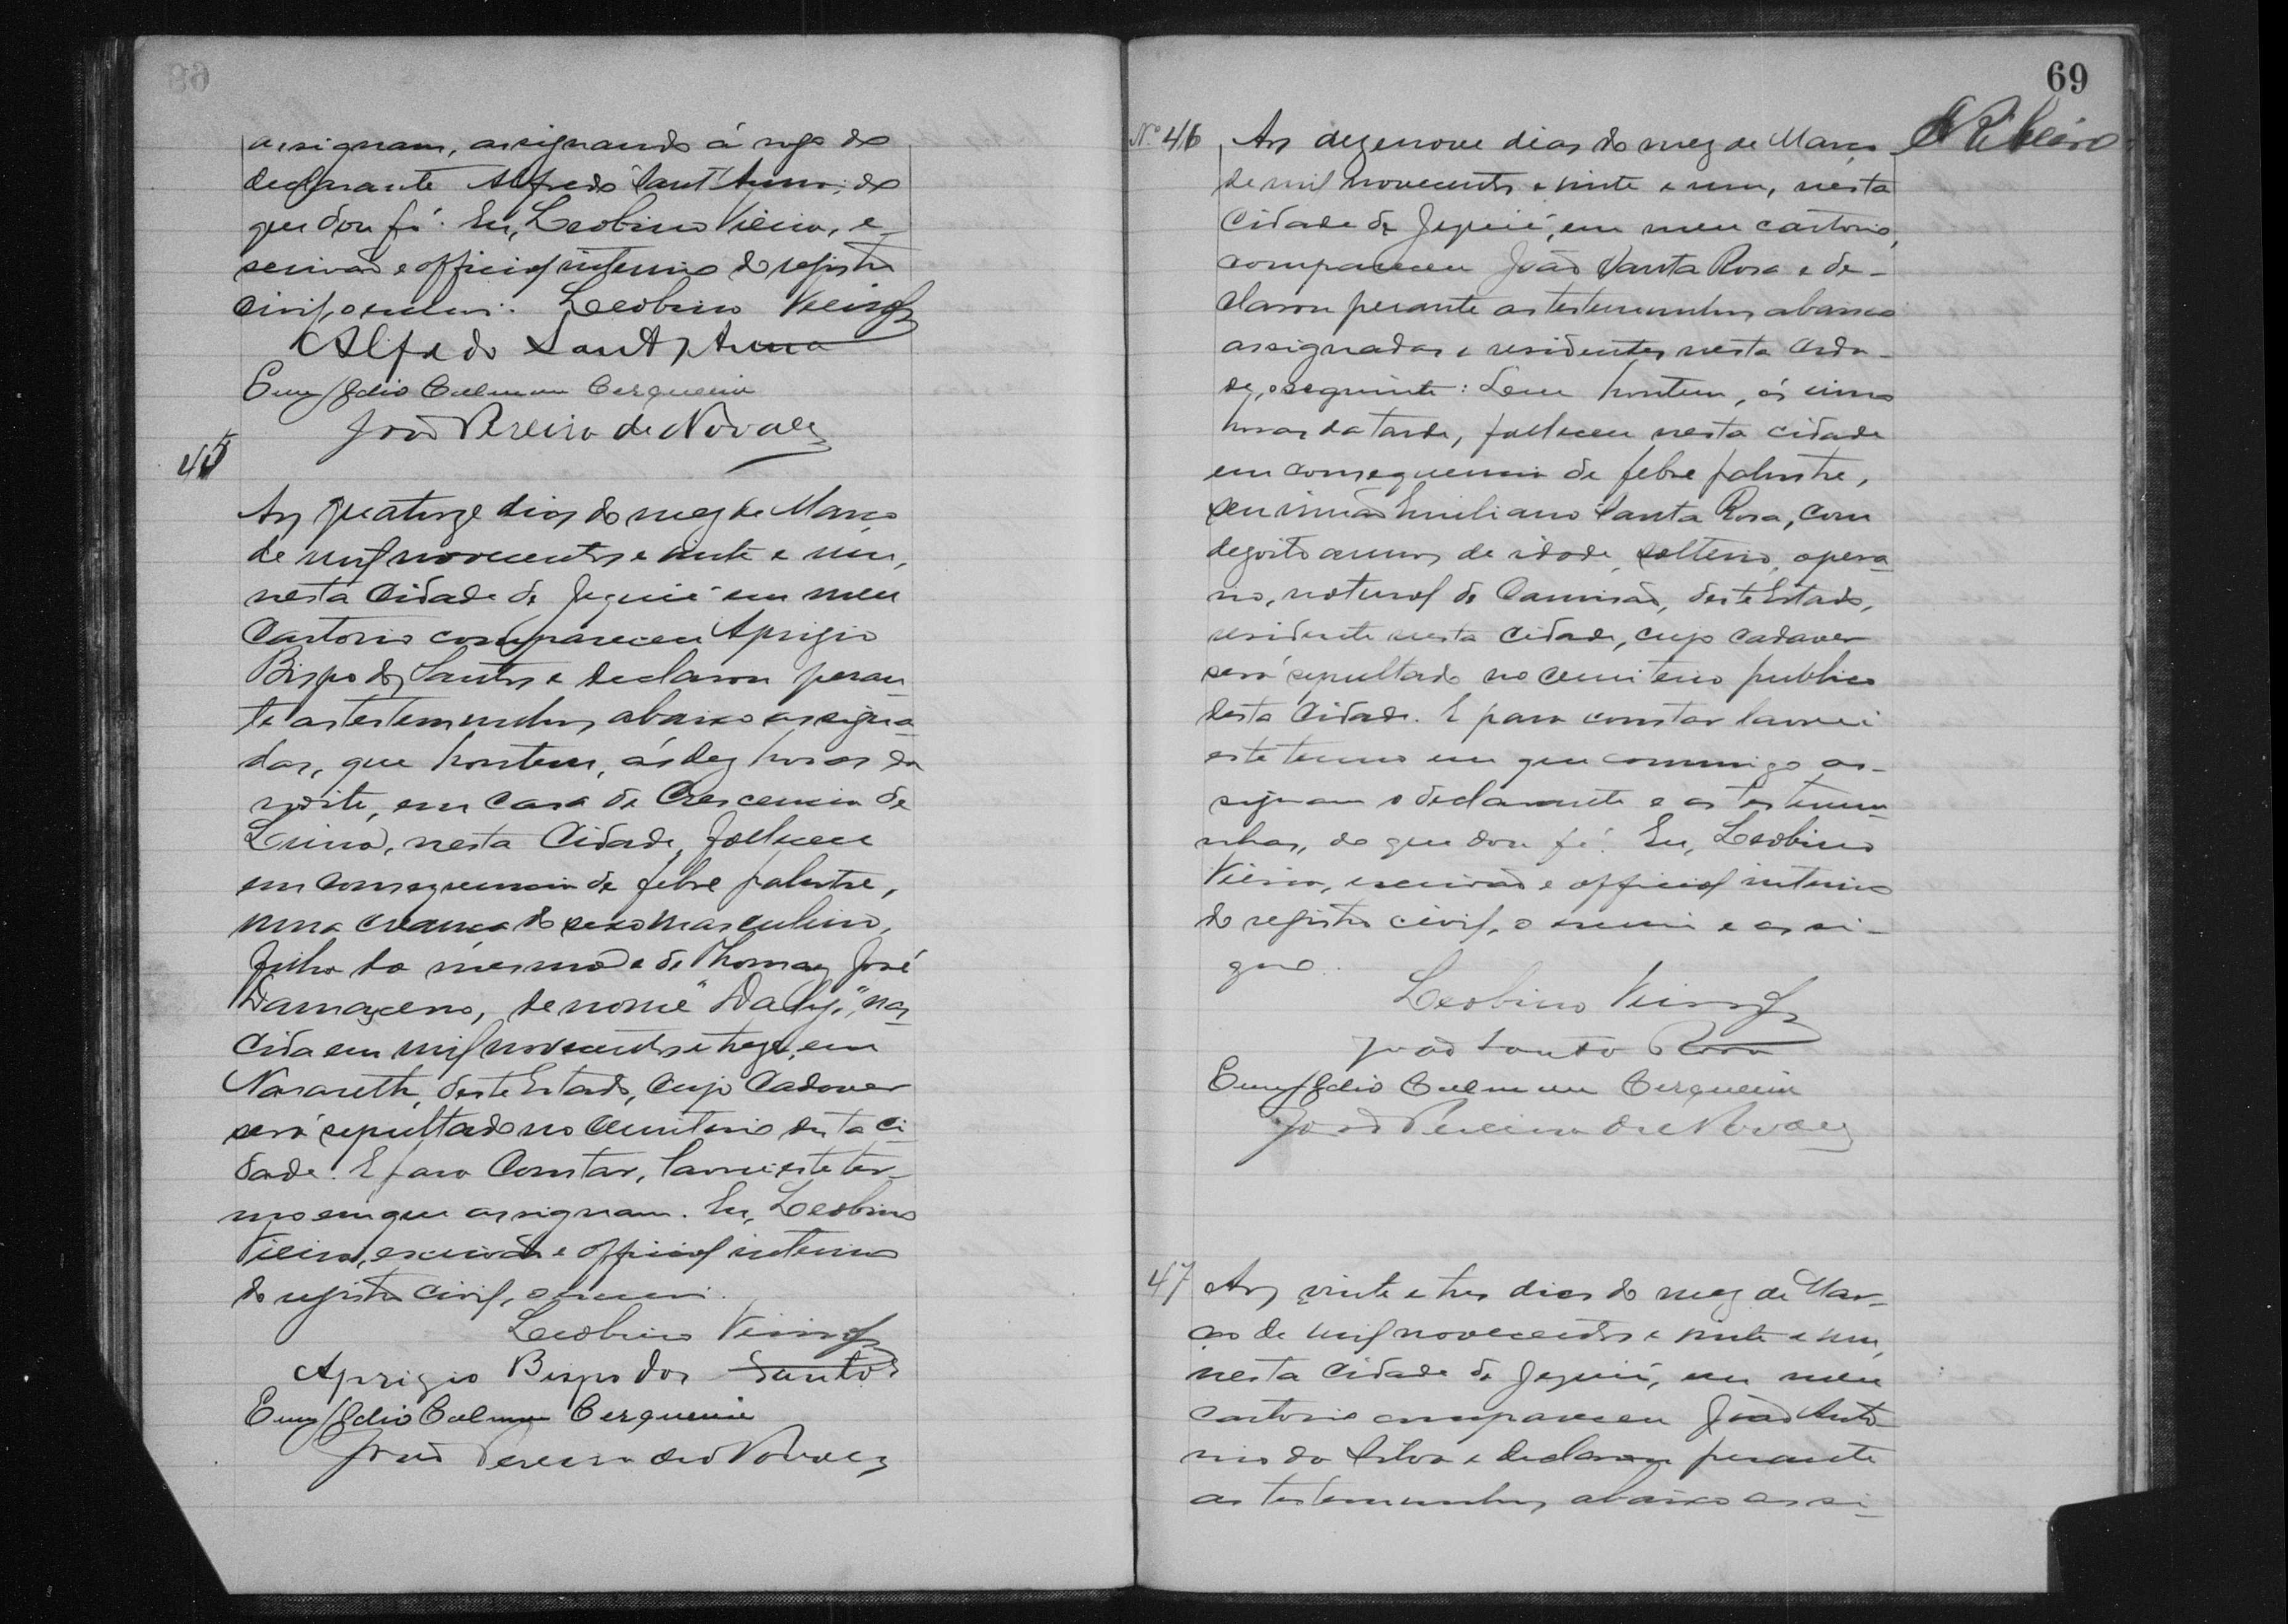 assignam, assignando á rogo do
declarante Alfredo Sant'Anna; do
que dou fé. Eu, Leobino Vieira, e-
scrivão e official interino do registro
civil, o escrevi. Leobino Vieira
Alfredo Sant'Anna
Emygdio Calmon Cerqueira
João Pereira de Novaes
45
Aos quatorze dias do mez de Março
de mil novecentos e vinte e um,
nesta Cidade de Jequié em meu
Cartorio compareceu Aprigio
Bispo dos Santos e declarou peran-
te as testemunhas abaixo assigna-
das, que hontem, ás dez horas da
noite, em casa de Crescencia de
nesta Cidade, falleceu
em consequencia de febre palustre,
uma creança do sexo masculino,
filho da mesma e de Thomaz José
Damasceno, de nome "Dady", nas-
cida em mil novecentos e treze, em
Nazareth, deste Estado, cujo cadaver
será sepultado no Cemiterio desta ci-
dade. E para constar, lavrei este ter-
mo em que assignam. Eu, Leobino
Vieira, escrivão e official interino
do registro civil, o escrevi.
Leobino Vieira
Aprigio Bispo dos Santos
Emygdio Calmon Cerqueira
João Pereira de Novaes
69
Ribeiro
Nº 46 Aos dezenove dias do mez de Março
de mil novecentos e vinte e um, nesta
Cidade de Jequié, em meu cartorio,
compareceu João Santa Rosa e de-
clarou perante as testemunhas abaixo
assignadas e residentes nesta cida-
de, o seguinte: Que hontem, ás cinco
horas da tarde, falleceu nesta cidade
em consequencia de febre palustre,
seu irmão Emiliano Santa Rosa, com
dezoito annos de idade, solteiro, opera-
rio, natural de Camisão, deste Estado,
residente nesta cidade, cujo cadaver
será sepultado no cemiterio publico
desta Cidade. E para constar lavrei
este termo em que commigo as-
signam o declarante e as testemu-
nhas, do que dou fé. Eu, Leobino
Vieira, escrivão e official interino
do registro civil, o escrevi e assi-
gno.
Leobino Vieira
João Santa Rosa
Emygdio Calmon Cerqueira
João Pereira de Novaes
47 Aos vinte e tres dias do mez de Mar-
ço de mil novecentos e vinte e um,
nesta Cidade de Jequié, em meu
cartorio compareceu João Anto
nio da Silva e declarou perante
as testemunhas abaixo assi-